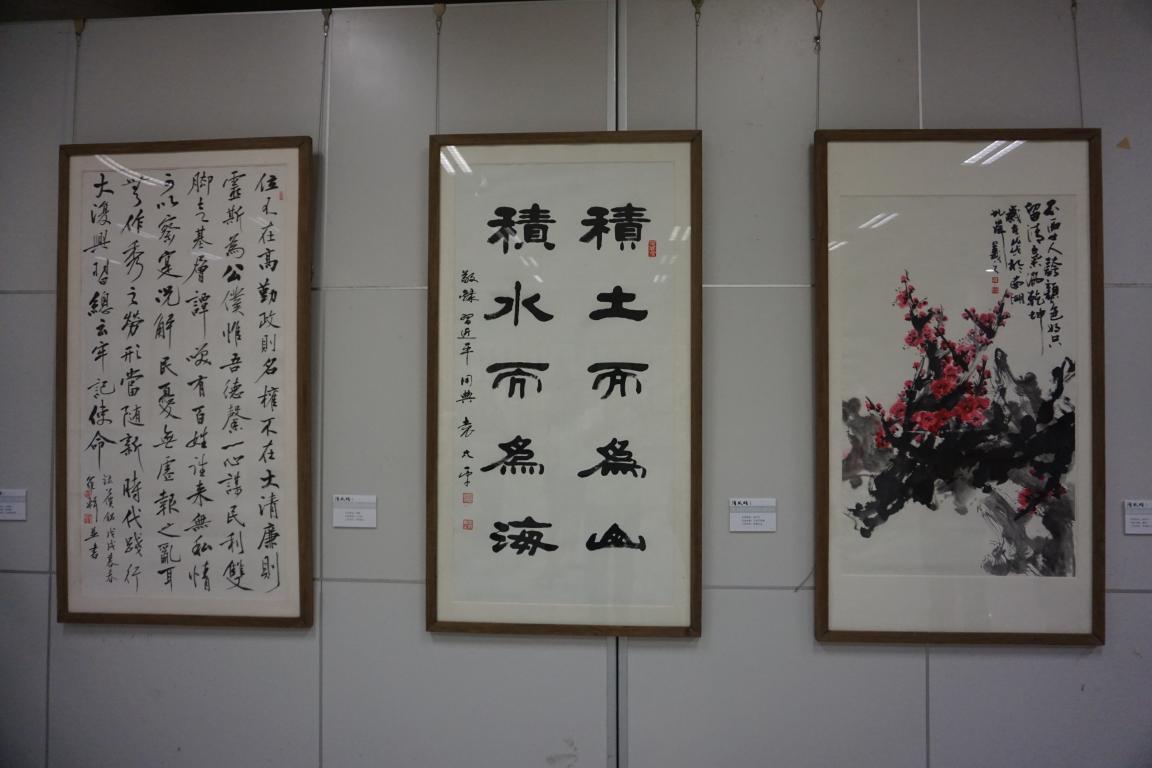 位不在高勤政則名權不在大清廉則
靈斯為公僕惟吾德馨一心謀民利雙
腳走基層譚笑有百姓往來無私情
可以察寔況解民憂無虛報之亂耳
作秀之勞形當隨新時代踐行
大復興習總云牢記使命
戊戌暮春
並書
積土而為山
積水而為海
敬錄習近平用典
不要人誇顏色好只
留清氣滿乾坤